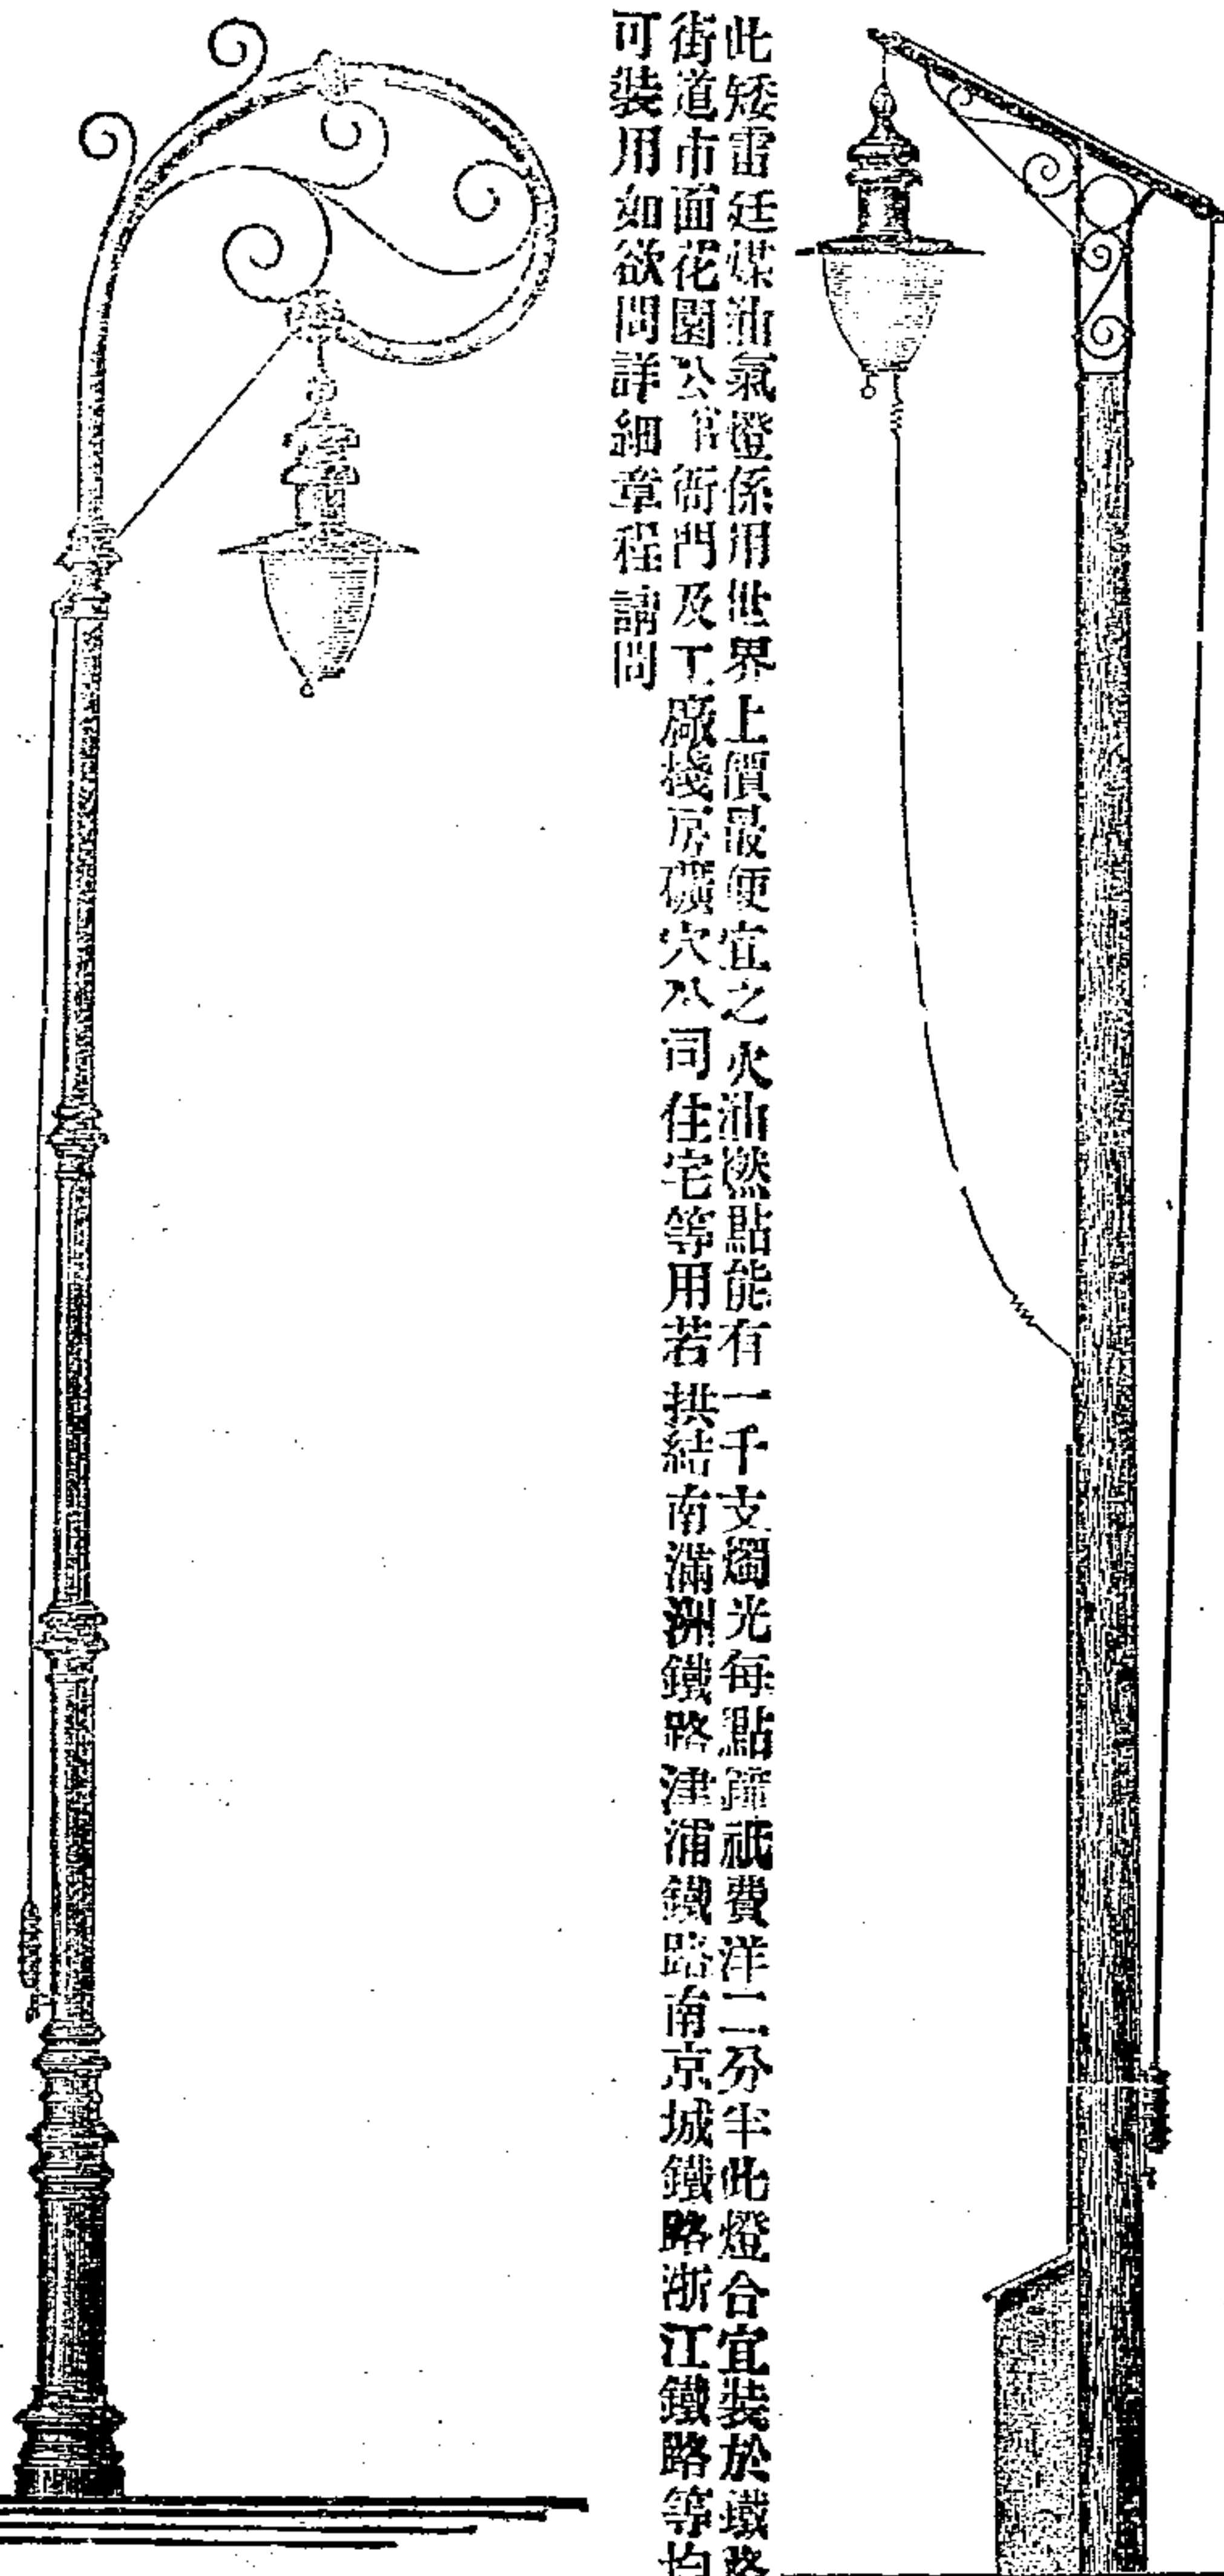 此矮雷廷煤油氣燈係用世界上價最便宜之火油燃點能有一千支燭光每點鐘祇費洋二分半此燈合宜裝於鐵路
街道市面花園公館衙門及工廠棧房礦穴公司住宅等用若拱結南滿洲鐵路津浦鐵路南京城鐵路浙江鐵路等均
可裝用如欲問詳細章程請問